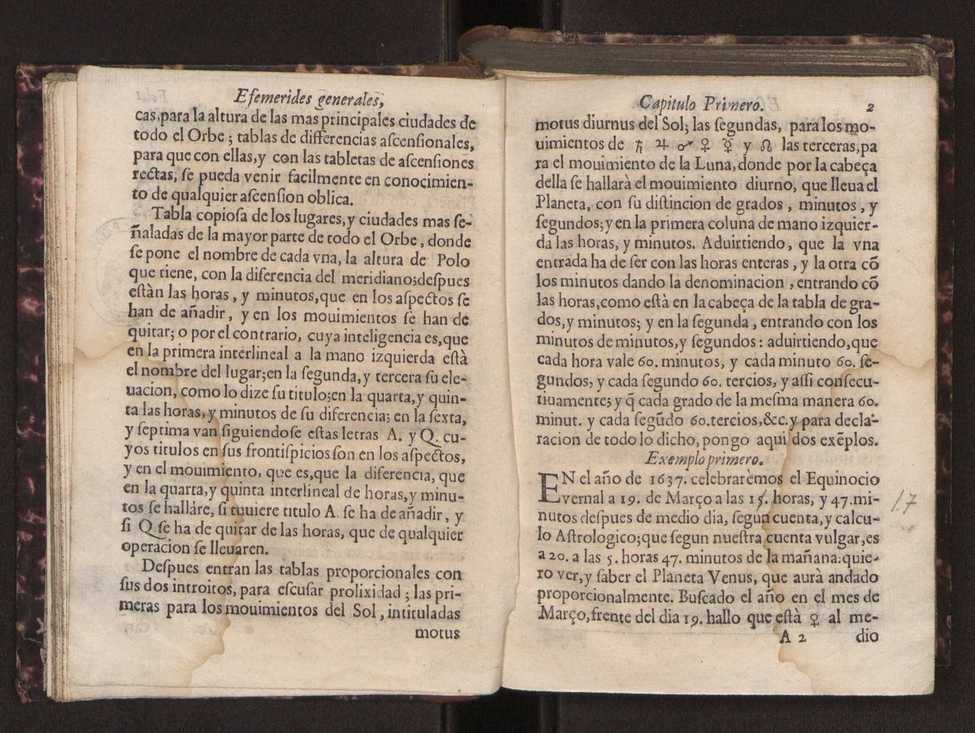 Efemerides generales,
cas, para la altura de las mas principales ciudades de
todo el Orbe; tablas de differencias ascensionales,
para que con ellas, y con las tabletas de ascensiones
rectas, se pueda venir facilmente en conocimien-
to de qualquier ascension oblica.
Tabla copiosa de los lugares, y ciudades mas se-
ñaladas de la mayor parte de todo el Orbe, donde
se pone el nombre de cada vna, la altura de Polo
que tiene, con la diferencia del meridiano; despues
estàn las horas, y minutos, que en los aspectos se
han de añadir, y en los mouimientos se han de
quitar; o por el contrario, cuya inteligencia es, que
en la primera interlineal a la mano izquierda està
el nombre del lugar; en la segunda, y tercera su ele-
uacion, como lo dize su titulo; en la quarta, y quin-
ta las horas, y minutos de su diferencia; en la sexta,
y septima van siguiendose estas letras A. y Q. cu-
yos titulos en sus frontispicios son en los aspectos,
y en el mouimiento, que es, que la diferencia, que
en la quarta, y quinta interlineal de horas, y minu-
tos se halláre, si tuuiere titulo A. se ha de añadir, y
si Q se ha de quitar de las horas, que de qualquier
operacion se lleuaren.
Despues entran las tablas proporcionales con
sus dos introitos, para escusar prolixidad; las pri-
meras para los mouimientos del Sol, intituladas
motus
Capitulo Primero. 2
motus diurnus del Sol; las segundas, para los mo-
uimientos de ♄ ♃ ♂ ♀ ☿ y ☊ las terceras, pa
ra el mouimiento de la Luna, donde por la cabeça
della se hallarà el mouimiento diurno, que lleua el
Planeta, con su distincion de grados, minutos, y
segundos; y en la primera coluna de mano izquier-
da las horas, y minutos. Aduirtiendo, que la vna
entrada ha de ser con las horas enteras, y la otra cō
los minutos dando la denominacion, entrando cō
las horas, como està en la cabeça de la tabla de gra-
dos, y minutos; y en la segunda, entrando con los
minutos de minutos, y segundos: aduirtiendo, que
cada hora vale 60. minutos, y cada minuto 60. se-
gundos; y cada segundo 60. tercios, y assi consecu-
tiuamente; y q̄ cada grado de la mesma manera 60.
minut. y cada segūdo 60. tercios, &c. y para decla-
racion de todo lo dicho, pongo aqui dos exēplos.
Exemplo primero.
EN el año de 1637. celebraremos el Equinocio
vernal a 19. de Março a las 15. horas, y 47. mi-
nutos despues de medio dia, segun cuenta, y calcu-
lo Astrologico; que segun nuestra cuenta vulgar, es
a 20. a las 5. horas 47. minutos de la mañana: quie-
ro ver, y saber el Planeta Venus, que aurà andado
proporcionalmente. Buscado el año en el mes de
Março, frente del dia 19. hallo que està ♀ al me-
A 2 dio
17